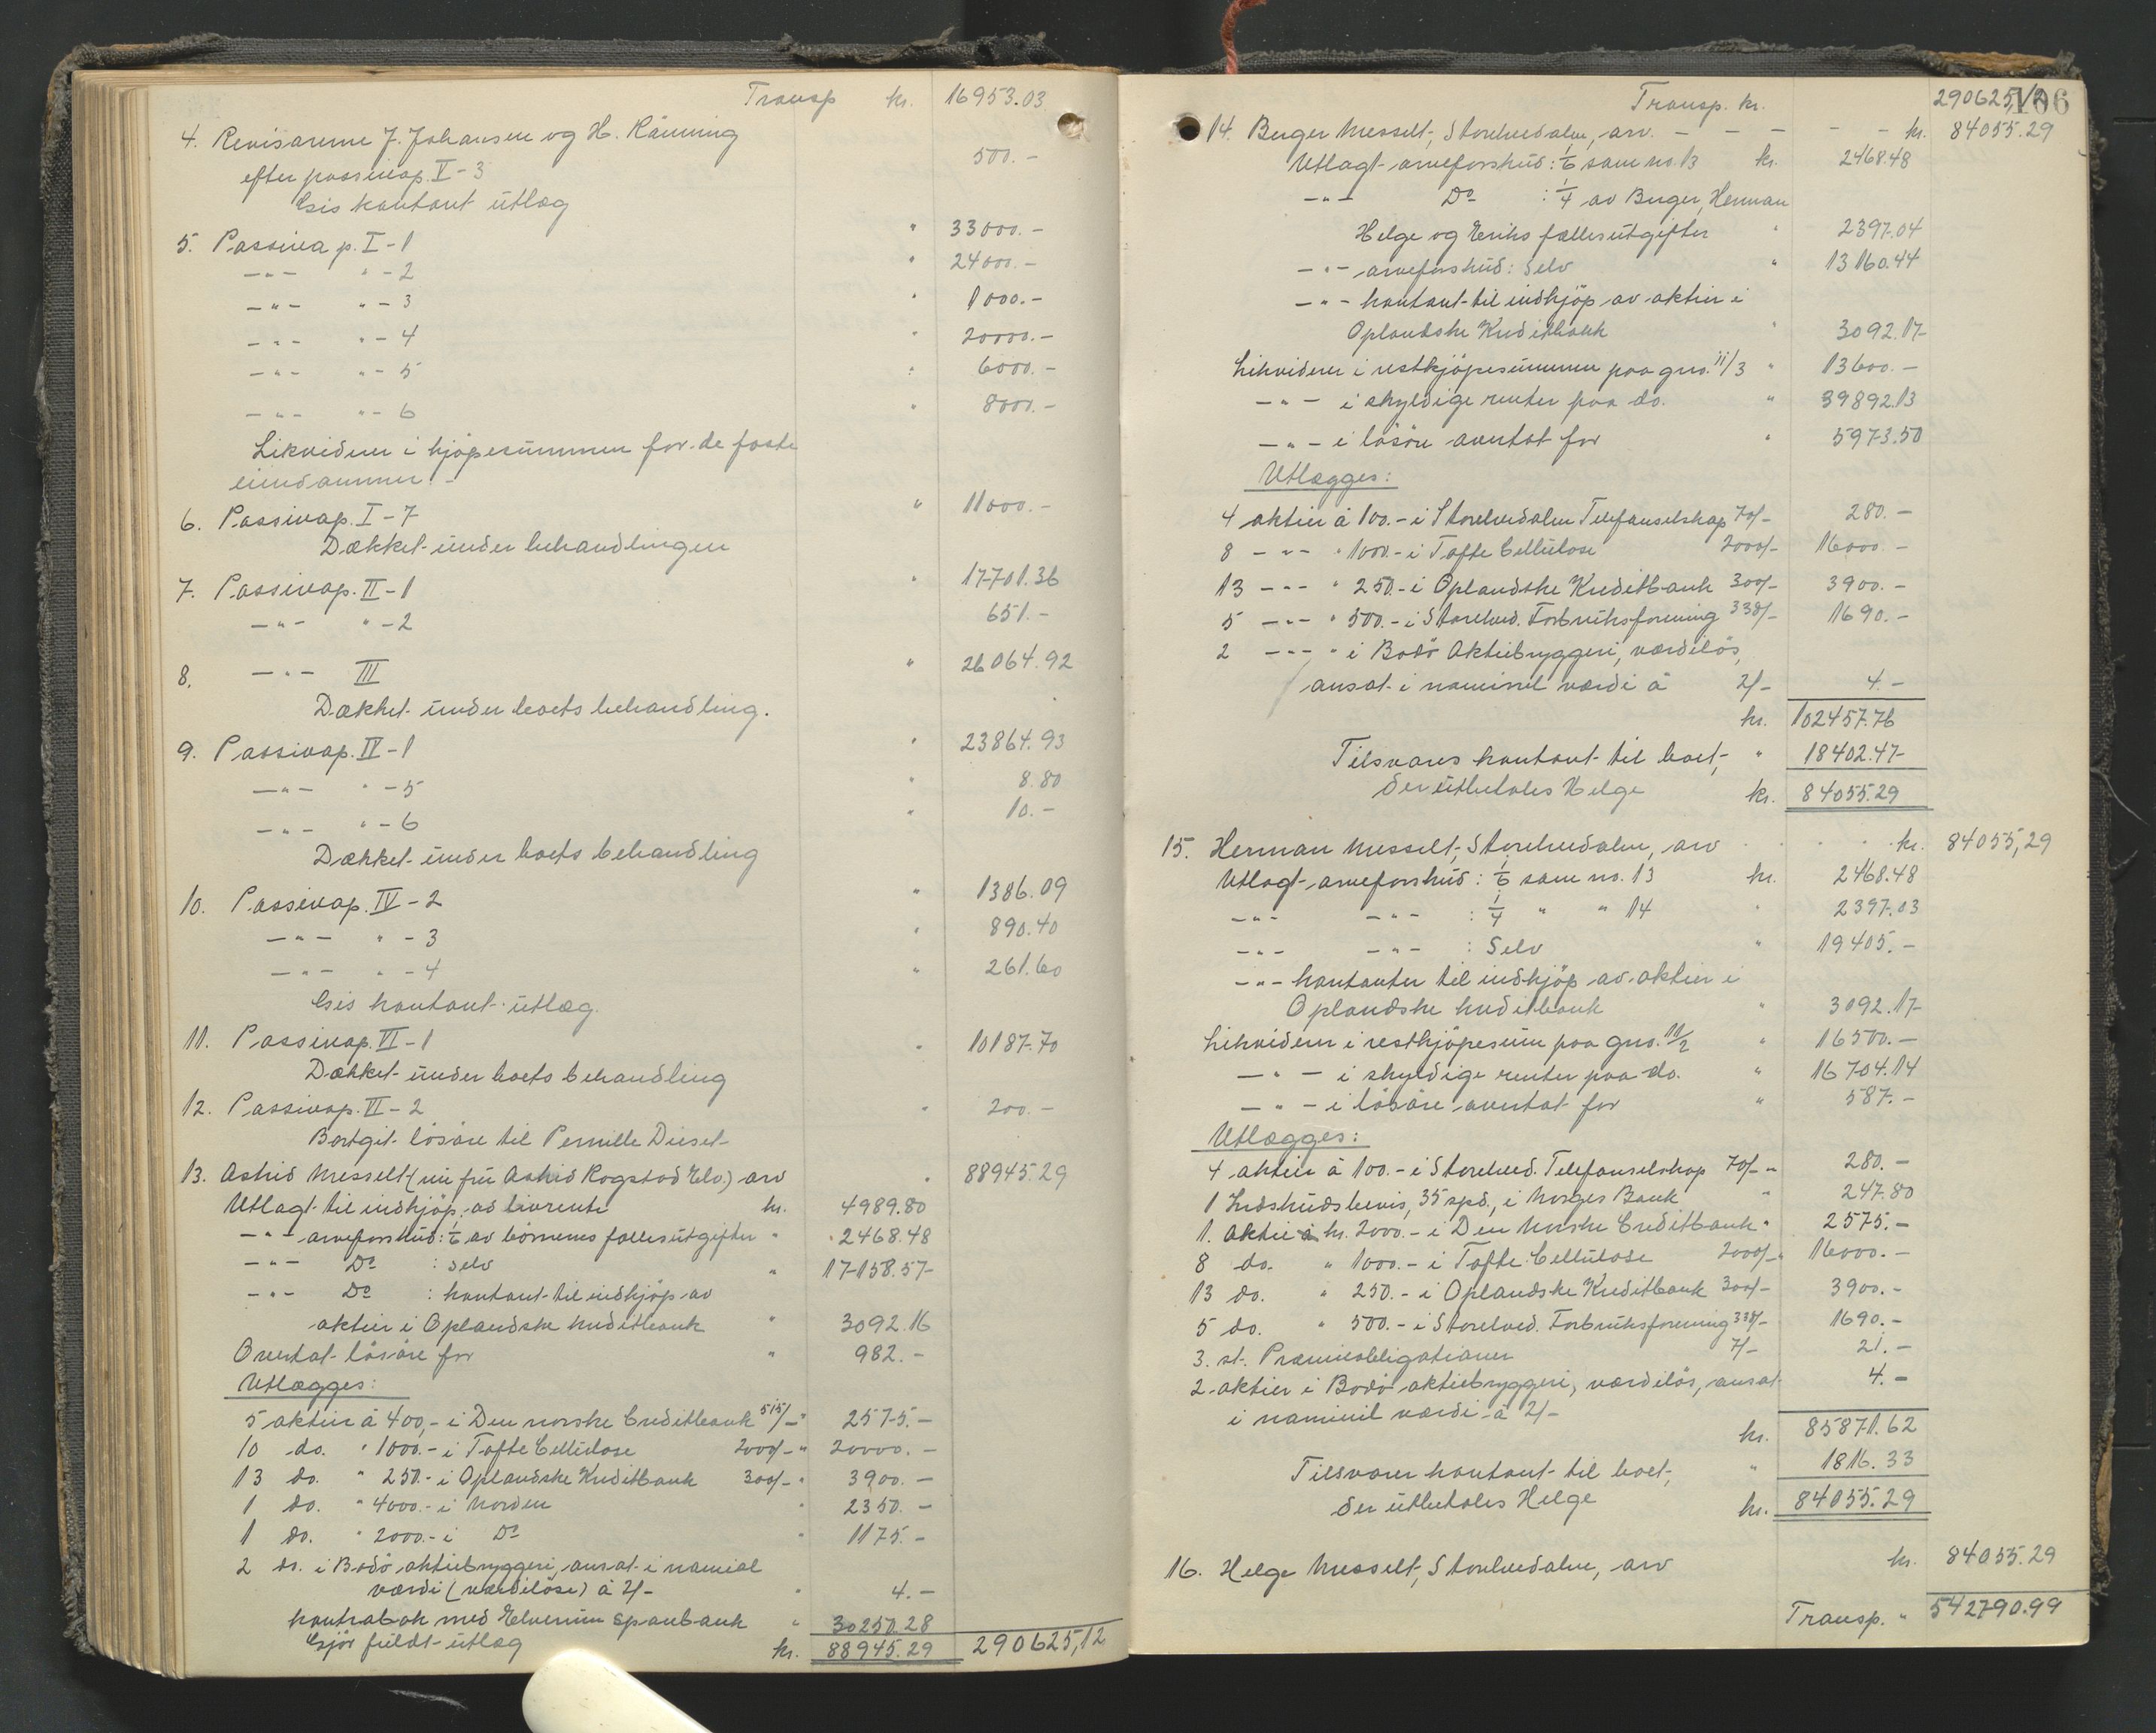 Transp kr. 16953.03
4. Revisorerne J. Johansen og H. Rånning
efter passivap. V - 3 500.-
Gis kontant utlæg
5. Passiva p. I - 1 " 33000.-
- " - " - 2 " 24000.-
- " - " - 3 " 1000.-
- " - " - 4 " 20000.-
- " - " - 5 " 6000.-
- " - " - 6 " 8000.-
Likviderer i kjöpesummen for de faste
eiendommer.-
6. Passivap. I - 7 " 11000.-
Dækket under behandlingen
7. Passivap. II - 1 " 17701.36
- " - " - 2 651.-
8. - " - III " 26064.92
Dækket under boets behandling.
9. Passivap. IV - 1 " 23864.93
- " - " - 5 " 8.80
- " - " - 6 " 10.-
Dækket under boets behandling
10. Passivap. IV - 2 " 1386.09
- " - " - 3 " 890.40
- " - " - 4 " 261.60
Gis kontant utlæg.
11. Passivap. VI - 1 " 10187.70
Dækket under boets behandling
12. Passivap. VI - 2 " 200.-
Bortgit lösöre til Pernille Diset
13. Astrid Messelt (nu fru Astrid Rogstad Elv.) arv " 88945.29
Utlagt til indkjöp av livrente kr. 4989.80
- " - arveforskud: 1/6 av börnenes fællesutgifter " 2468.48
- " - Do : selv " 17158.57
- " - Do : kontant til indkjöp av
aktier i Oplandske kreditbank " 3092.16
Overtat lösöre for " 982.-
Utlægges:
5 aktier à 400,- i Den norske Creditbank 515/- " 2575.-
10 do. " 1000.- i Tofte Cellulose 2000/- " 20000.-
13 do. " 250.- i Oplandske Kreditbank 300/- " 3900.-
1 do. " 4000.- i Norden " 2350.-
1 do. " 2000.- i Do " 1175.-
2 do. i Bodö aktiebryggeri, ansat i nominel
værdi (værdilöse) à 2/- " 4.-
kontrabok med Elverum Sparebank " 30250.28
Gjör fuldt utlæg kr. 88945.29 290625,12
Transp. kr. 290625,12
106
14. Berger Messelt, Storelvedalen, arv. - - - - - kr. 84055.29
Utlagt arveforskud: 1/6 som no. 13 kr. 2468.48
- " - Do : 1/4 av Berger, Herman
Helge og Eriks fællesutgifter " 2397.04
- " - arveforskud: Selv " 13160.44
- " - kontant til indkjöp av aktier i
Oplandske Kreditbank " 3092.17
Likviderer i restkjöpesummen paa gno. 11/3 " 13600.-
- " - i skyldige renter paa do. " 39892.13
- " - i lösöre overtat for " 5973.50
Utlægges:
4 aktier à 100.- i Storelvedalen Telefonselskap 70/- 280.-
8 - " - " 1000.- i Tofte Cellulose 2000/- 16000.-
13 - " - " 250.- i Oplandske Kreditbank 300/- 3900.-
5 - " - " 500.- i Storelved. Forbruksforening 338/- 1690.-
2 - " - " i Bodö Aktiebryggeri, værdilös,
ansat i nominel værdi à 2/- 4.-
kr. 102457.76
Tilsvares kontant til boet, " 18402.47
der utbetales Helge kr. 84055.29
15. Herman Messelt, Storelvedalen, arv . . . . kr. 84055,29
Utlagt arveforskud: 1/6 som no. 13 kr. 2468.48
- " - - " - : 1/4 " " 14 " 2397.03
- " - - " - : Selv " 19405.-
- " - kontanter til indkjöp av aktier i
Oplandske kreditbank " 3092.17
Likviderer i restkjöpesum paa gno. 11/2 " 16500.-
- " - i skyldige renter paa do. " 16704.14
- " - i lösöre overtat for " 587.-
Utlægges:
4 aktier à 100.- i Storelved. Telefonselskap 70/- " 280.-
1 Indskudsbevis, 35 spd., i Norges Bank " 247.80
1. Aktie à kr. 2000.- i Den Norske Creditbank " 2575.-
8 do. " 1000.- i Tofte Cellulose 2000/- " 16000.-
13 do. " 250.- i Oplandske Kreditbank 300/- 3900.-
5 do. " 500.- i Storelved. Forbruksforening 338/- 1690.-
3. st. Præmieobligationer 7/- 21.-
2 aktier i Bodö aktiebryggeri, værdilös, ansat 4.-
i nominel værdi à 2/-
kr. 85871.62
Tilsvarer kontant til boet, " 1816.33
der utbetales Helge kr. 84055.29
16. Helge Messelt, Storelvedalen, arv kr. 84055.29
Transp. " 542790.99